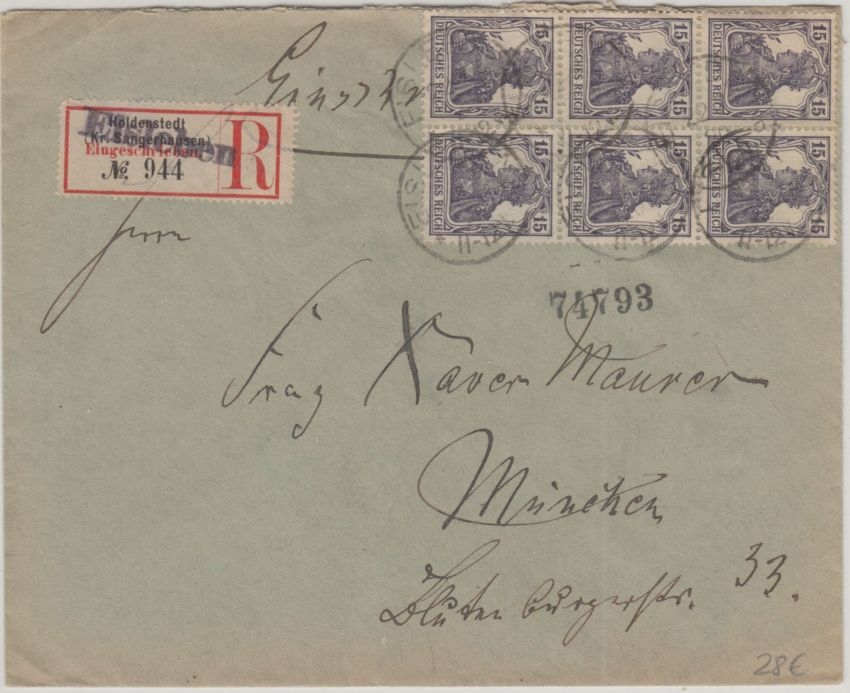 Einschr
Holdenstedt
(Kr. Sangerhausen)
Eingeschrieben
№ 944
R
Eisleben
15 15 15
DEUTSCHES REICH DEUTSCHES REICH DEUTSCHES REICH
15 15 15
15 15 15
DEUTSCHES REICH DEUTSCHES REICH DEUTSCHES REICH
EISL
11-12
Herrn
74793
Franz Xaver Maurer
München
Blutenburgerstr. 33.
28€